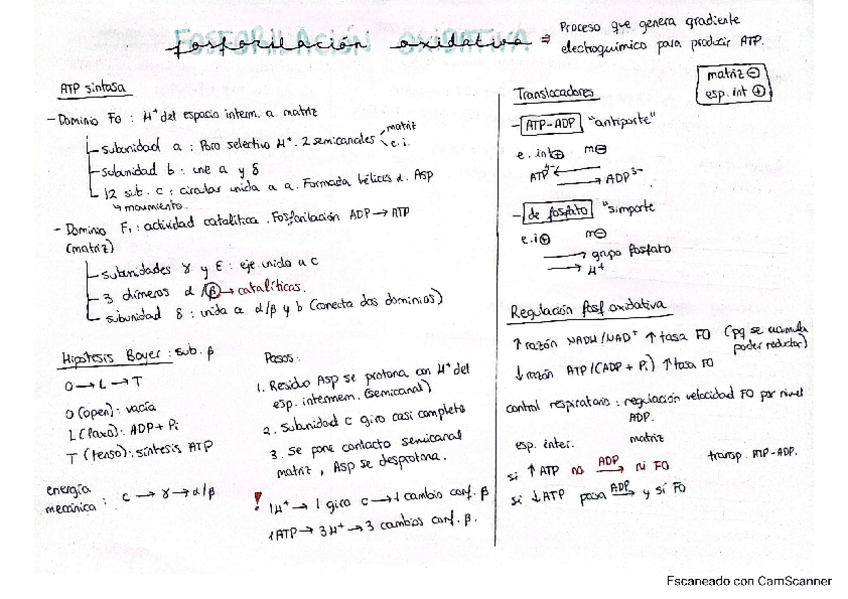 fosforilación oxidativa ⇒ Proceso que genera gradiente
electroquímico para producir ATP.
ATP sintasa
- Dominio F0 : H+ del espacio interm. a matriz
subunidad a : Poro selectivo H+. 2 semicanales matriz
e.i.
subunidad b : une a y δ
12 sub. c : circular unida a a. Formada hélices α. Asp
↳ movimiento.
- Dominio F1 : actividad catalítica. Fosforilación ADP → ATP
(matriz)
subunidades γ y ε : eje unido a c
3 dímeros α/β → catalíticas.
subunidad δ : unida a α/β y b (conecta dos dominios)
Hipótesis Boyer : sub. β
O → L → T
O (open) : vacía
L (laxo) : ADP + Pi
T (tenso) : síntesis ATP
energía
mecánica : c → γ → α/β
Pasos:
1. Residuo Asp se protona con H+ del
esp. intermem. (semicanal)
2. Subunidad c giro casi completo
3. Se pone contacto semicanal
matriz, Asp se desprotona.
! 1H+ → 1 giro c → 1 cambio conf. β
1 ATP → 3H+ → 3 cambios conf. β.
matriz ⊖
esp. int ⊕
Translocadores
- ATP-ADP "antiporte"
e. int ⊕ m ⊖
ATP4- ←
→ ADP3-
- de fosfato "simporte
e.i ⊕ m ⊖
→ grupo fosfato
→ H+
Regulación fosf oxidativa
↑ razón NADH/NAD+ ↑ tasa FO (pq se acumula
poder reductor)
↓ razón ATP/(ADP + Pi) ↑ tasa FO
control respiratorio : regulación velocidad FO por nivel
ADP.
esp. inter. matriz
si ↑ ATP no ADP → ni FO transp. ATP-ADP.
si ↓ ATP pasa ADP → y sí FO
Escaneado con CamScanner